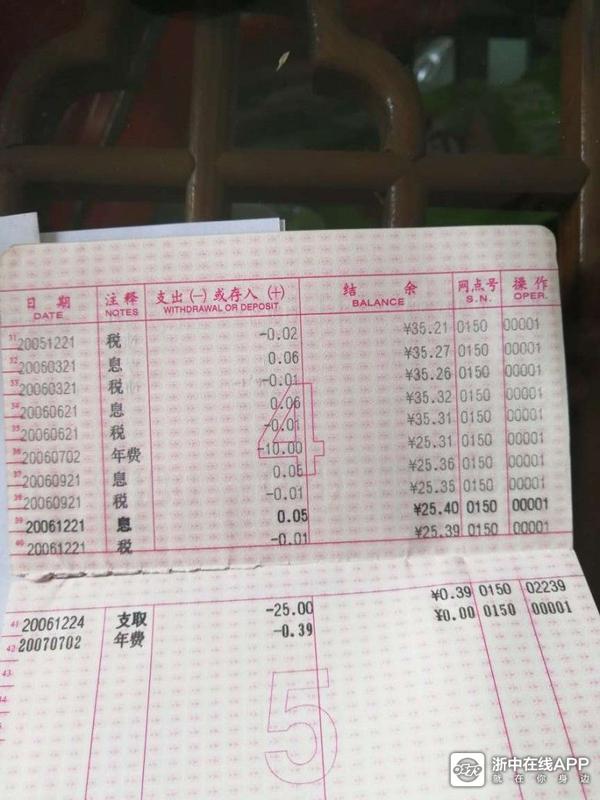 日 期 注 释 支出(一)或存入(+) 结 余 网点号 操 作
DATE NOTES WITHDRAWAL OR DEPOSIT BALANCE S.N. OPER.
31 20051221 税 -0.02 ¥35.21 0150 00001
32 20060321 息 0.06 ¥35.27 0150 00001
33 20060321 税 -0.01 ¥35.26 0150 00001
34 20060621 息 0.06 ¥35.32 0150 00001
35 20060621 税 -0.01 ¥35.31 0150 00001
36 20060702 年费 -10.00 ¥25.31 0150 00001
37 20060921 息 0.05 ¥25.36 0150 00001
38 20060921 税 -0.01 ¥25.35 0150 00001
39 20061221 息 0.05 ¥25.40 0150 00001
40 20061221 税 -0.01 ¥25.39 0150 00001
4
41 20061224 支取 -25.00 ¥0.39 0150 02239
42 20070702 年费 -0.39 ¥0.00 0150 00001
43
44
45
5
浙中在线APP
就在你身边